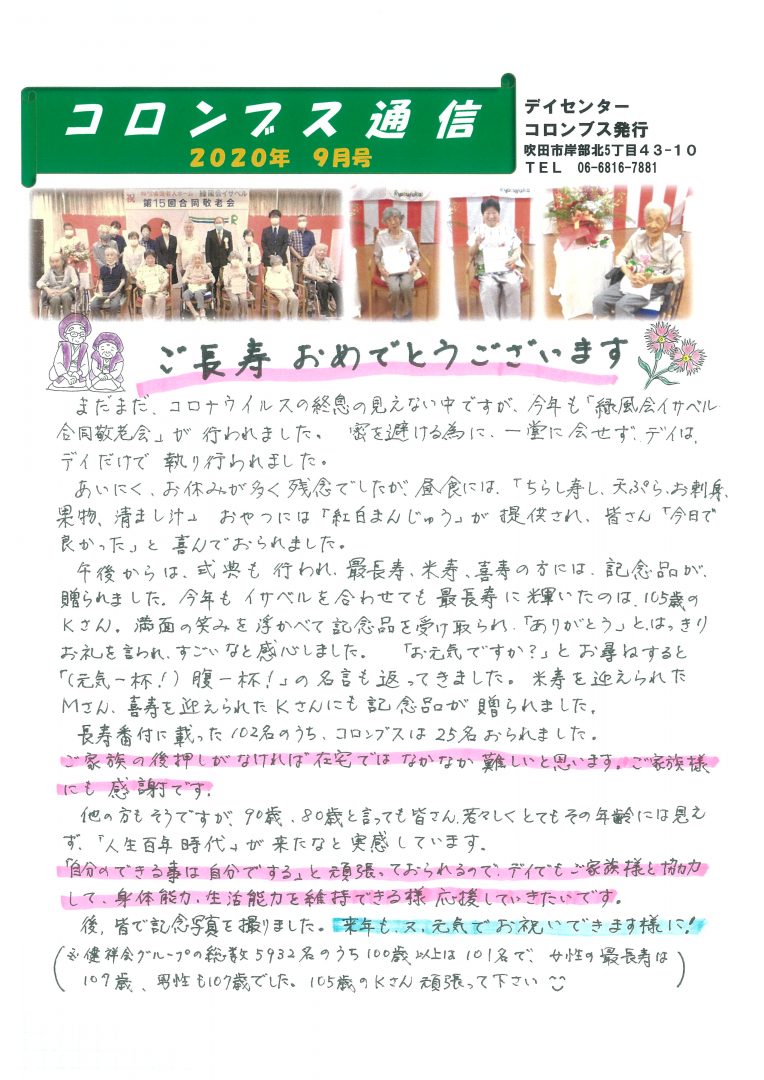 コロンブス通信
2020年 9月号
デイセンター
コロンブス発行
吹田市岸部北5丁目43-10
TEL 06-6816-7881
祝
緑風会イサベル
第15回合同敬老会
ご長寿 おめでとうございます
まだまだ、コロナウイルスの終息の見えない中ですが、今年も「緑風会イサベル
合同敬老会」が 行われました。 密を避ける為に、一堂に会せず、デイは、
デイだけで 執り行われました。
あいにく、お休みが多く残念でしたが、昼食には、「ちらし寿し、天ぷら、お刺身、
果物、清まし汁」 おやつには「紅白まんじゅう」が 提供され、皆さん「今日で
良かった」と 喜んでおられました。
午後からは、式典も 行われ、最長寿、米寿、喜寿の方には、記念品が、
贈られました。今年も イサベルを合わせても 最長寿に輝いたのは、105歳の
Kさん。満面の笑みを浮かべて記念品を受け取られ、「ありがとう」と、はっきり
お礼を言われ、すごいなと感心しました。 「お元気ですか?」とお尋ねすると
「(元気一杯!) 腹一杯!」の名言も返ってきました。 米寿を迎えられた
Mさん、喜寿を迎えられたKさんにも記念品が 贈られました。
長寿番付に載った102名のうち、コロンブスは25名おられました。
ご家族の後押しがなければ在宅では なかなか難しいと思います。ご家族様
にも 感謝です。
他の方もそうですが、90歳、80歳と言っても皆さん、若々しくとてもその年齢には見え
ず、「人生百年時代」が来たなと実感しています。
「自分のできる事は自分でする」と頑張っておられるので、デイでもご家族様と協力
して、身体能力、生活能力を維持できる様 応援していきたいです。
後、皆で記念写真を撮りました。来年も、又、元気でお祝いできます様に!
(※健祥会グループの総数5932名のうち100歳以上は101名で、女性の最長寿は
109歳、男性も107歳でした。105歳のKさん頑張って下さい)